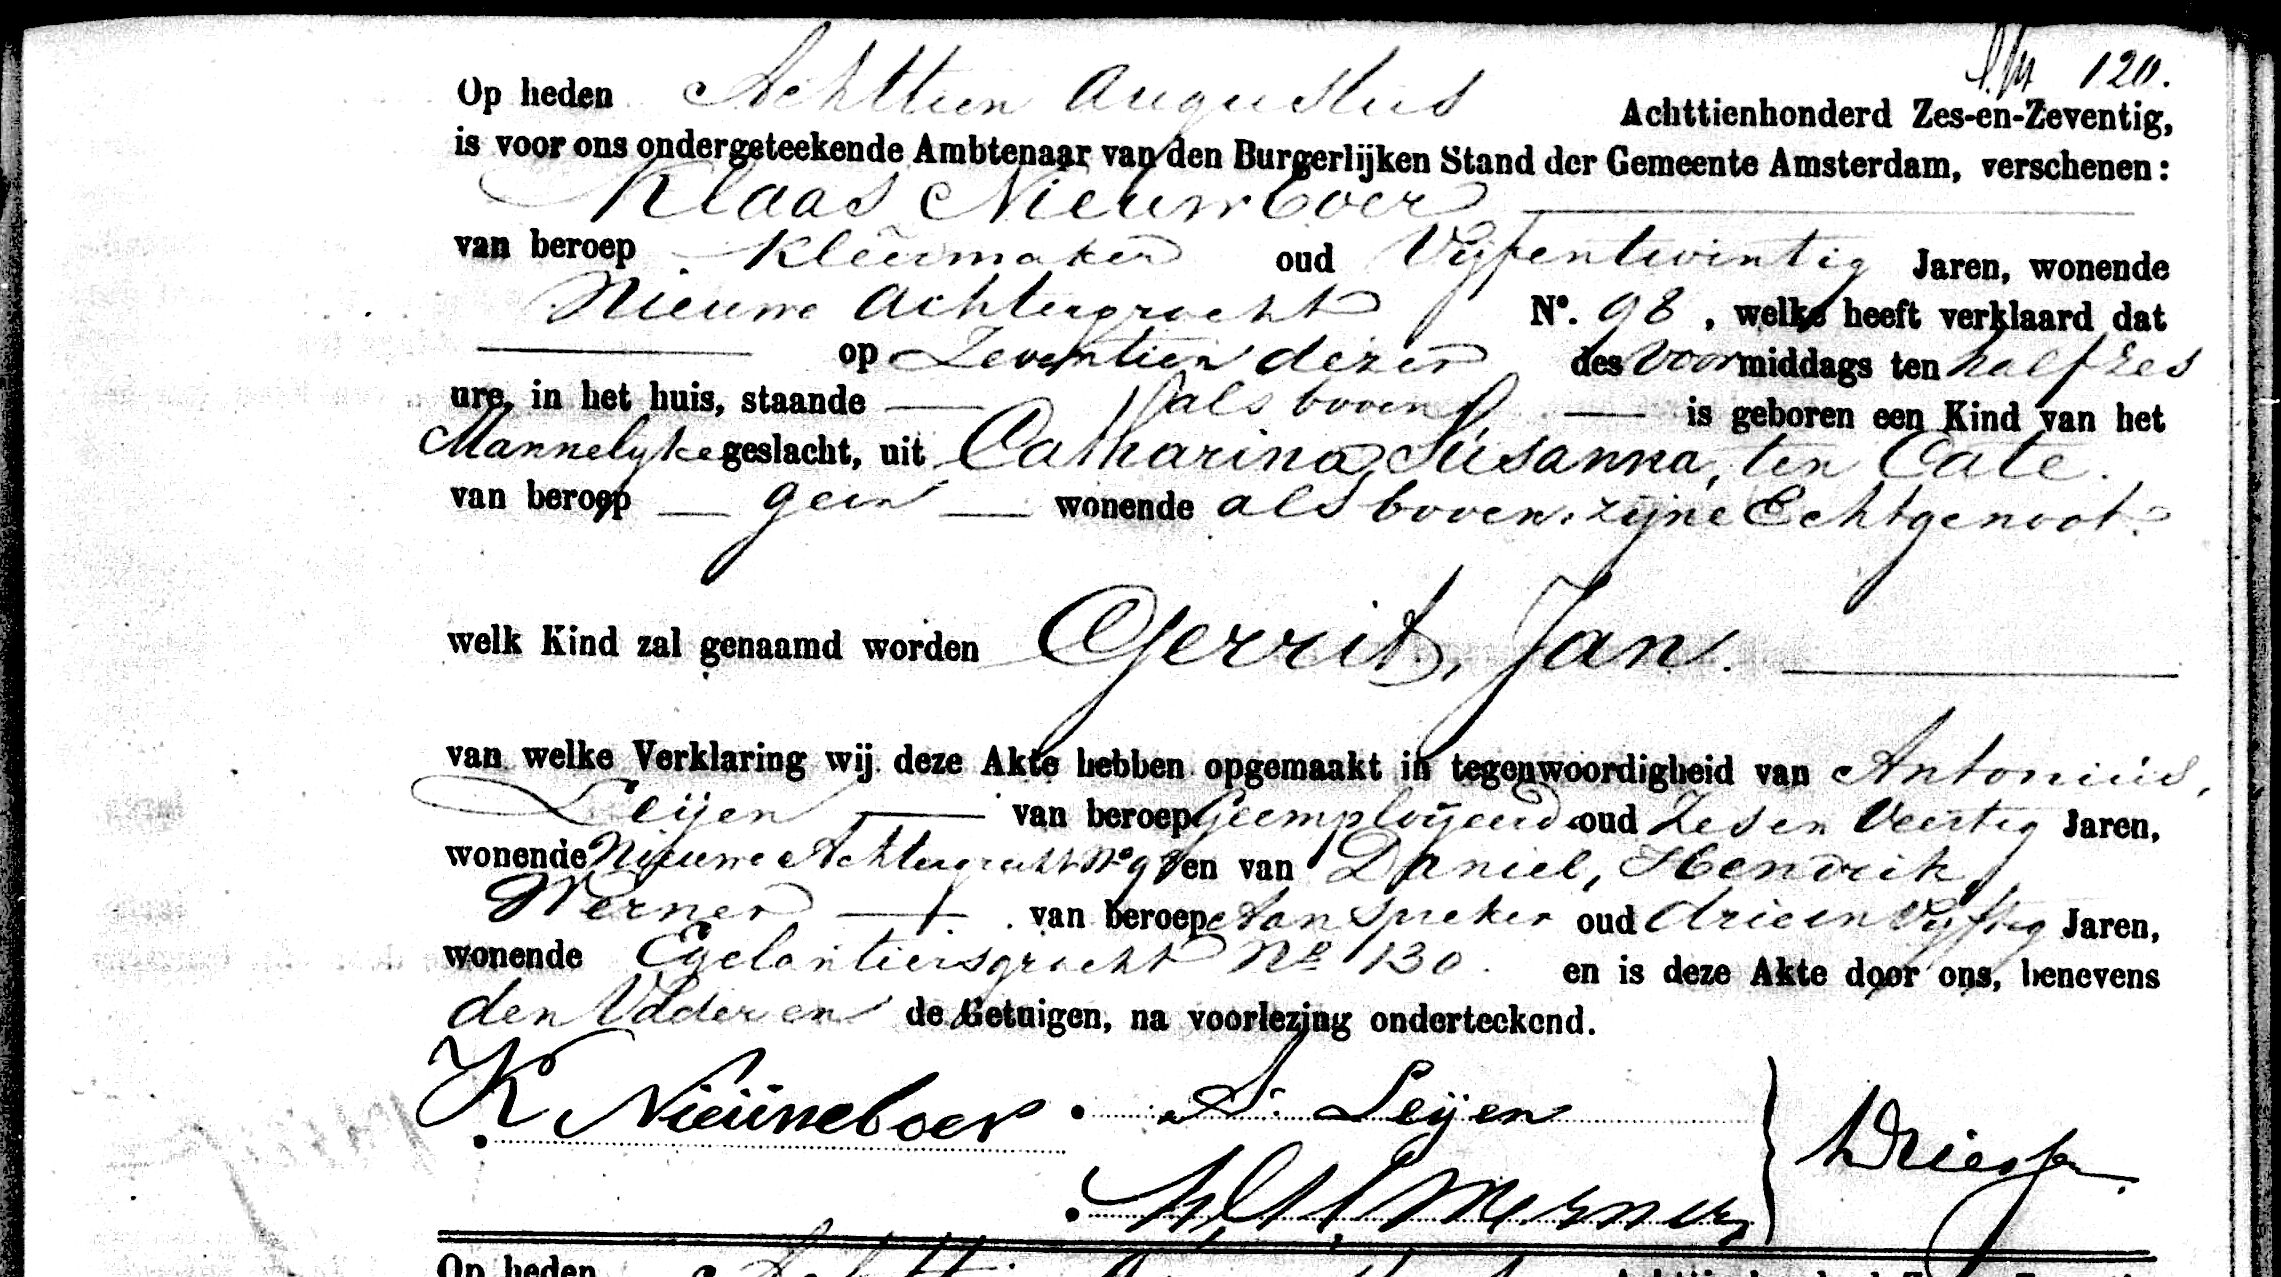 120.
Op heden Achttien Augustus Achttienhonderd Zes-en-Zeventig,
is voor ons ondergeteekende Ambtenaar van den Burgerlijken Stand der Gemeente Amsterdam, verschenen:
Klaas Nieuwboer
van beroep Kleermaker oud Vijfentwintig Jaren, wonende
Nieuwe Achtergracht No. 98, welke heeft verklaard dat
op Zeventien dezer des Voormiddags ten half zes
ure, in het huis, staande als boven is geboren een Kind van het
Mannelyke geslacht, uit Catharina, Susanna, ten Cate.
van beroep geen wonende als boven, zijne Echtgenoot.
welk Kind zal genaamd worden Gerrit, Jan.
van welke Verklaring wij deze Akte hebben opgemaakt in tegenwoordigheid van Antonius,
Leijen van beroep Geemployeerd oud Zes en Veertig Jaren,
wonende Nieuwe Achtergracht No 98 en van Daniel, Hendrik,
Werner van beroep Aanspreker oud drie en Vijftig Jaren,
wonende Egelantiersgracht No 130. en is deze Akte door ons, benevens
den Vader en de Getuigen, na voorlezing onderteekend.
K Nieuweboer A. Leijen
Werner
Op heden